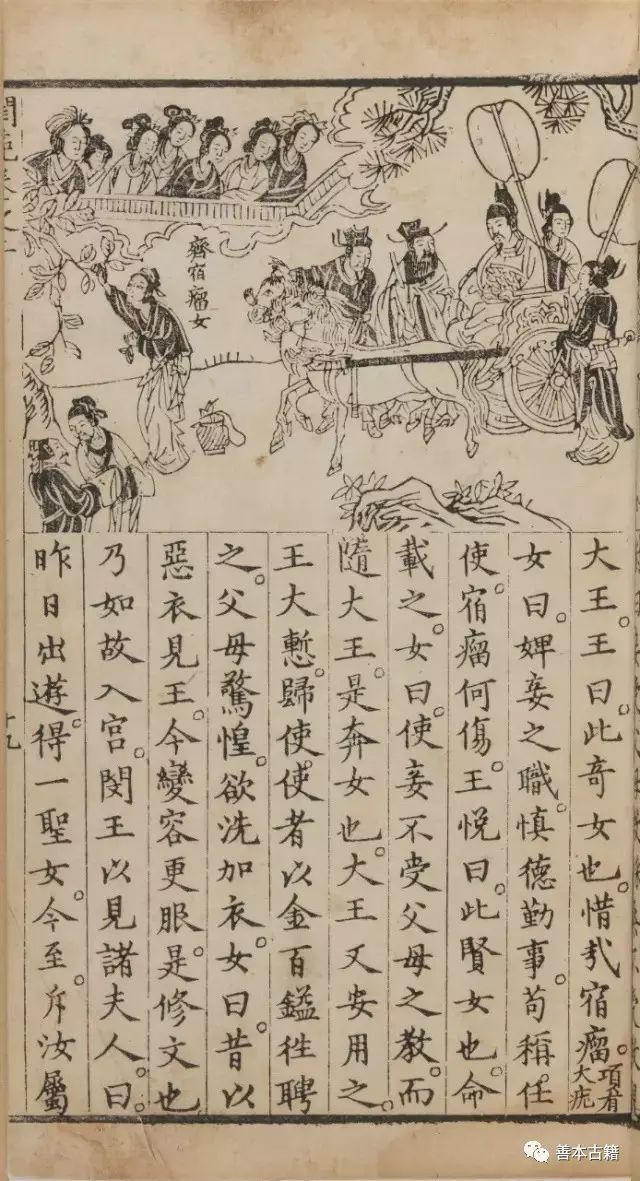 齊宿瘤女
大王。王曰。此奇女也。惜㢤宿瘤。項有大疣
女曰。婢妾之職。慎德勤事。苟稱任
使。宿瘤何傷。王悅曰。此賢女也。命
載之。女曰。使妾不受父母之教。而
隨大王。是奔女也。大王又安用之。
王大慙。歸使使者以金百鎰徃聘
之。父母驚惶。欲洗加衣。女曰。昔以
惡衣見王。今變容更服。是修文也
乃如故入宮。閔王以見諸夫人。曰。
昨日出遊。得一聖女。今至。斥汝屬
閨範卷之
十九
善本古籍